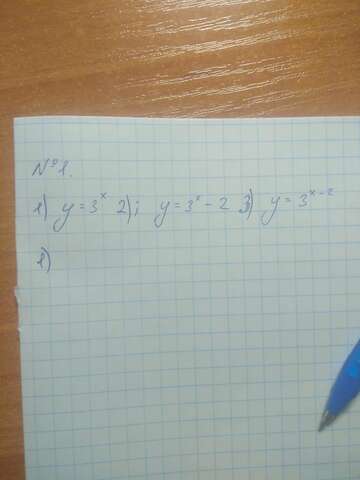 №1.
1) y = 3ˣ 2); y = 3ˣ - 2 3) y = 3ˣ⁻²
1)